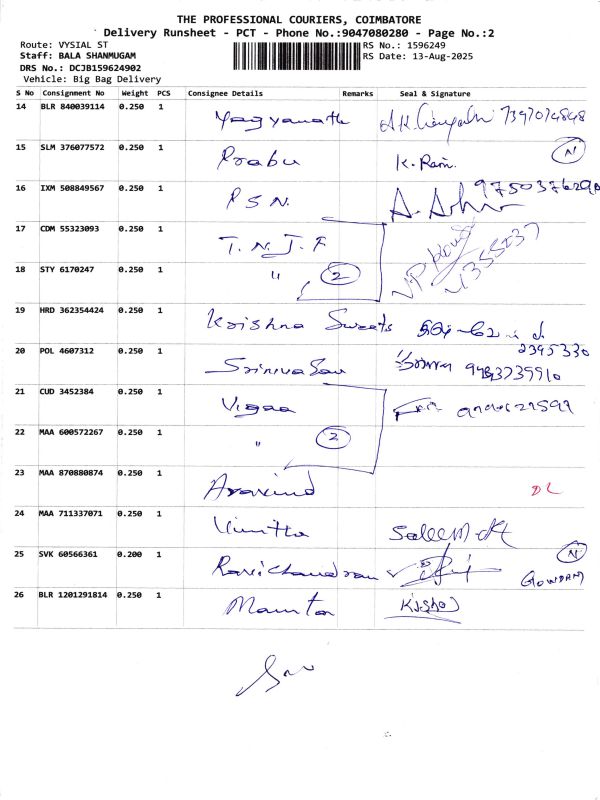 THE PROFESSIONAL COURIERS, COIMBATORE
Delivery Runsheet - PCT - Phone No.:9047080280 - Page No.:2
Route: VYSIAL ST
RS No.: 1596249
Staff: BALA SHANMUGAM
RS Date: 13-Aug-2025
DRS No.: DCJB159624902
Vehicle: Big Bag Delivery
S No Consignment No Weight PCS Consignee Details Remarks Seal & Signature
14 BLR 840039114 0.250 1 7397074848
15 SLM 376077572 0.250 1 Prabu K. Ram. N
16 IXM 508849567 0.250 1 P S N. 9750376290
17 CDM 55323093 0.250 1 T. N. J. F
18 STY 6170247 0.250 1 " 2
19 HRD 362354424 0.250 1 Krishna Sweets
20 POL 4607312 0.250 1 Srinivasan 2395330
21 CUD 3452384 0.250 1
22 MAA 600572267 0.250 1 " 2
23 MAA 870880874 0.250 1 Aravind DL
24 MAA 711337071 0.250 1 Saleem
25 SVK 60566361 0.200 1 Ravichandran N
26 BLR 1201291814 0.250 1